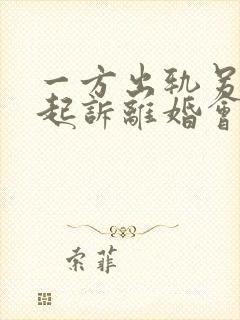 一方出軌另
起訴離婚會
索菲